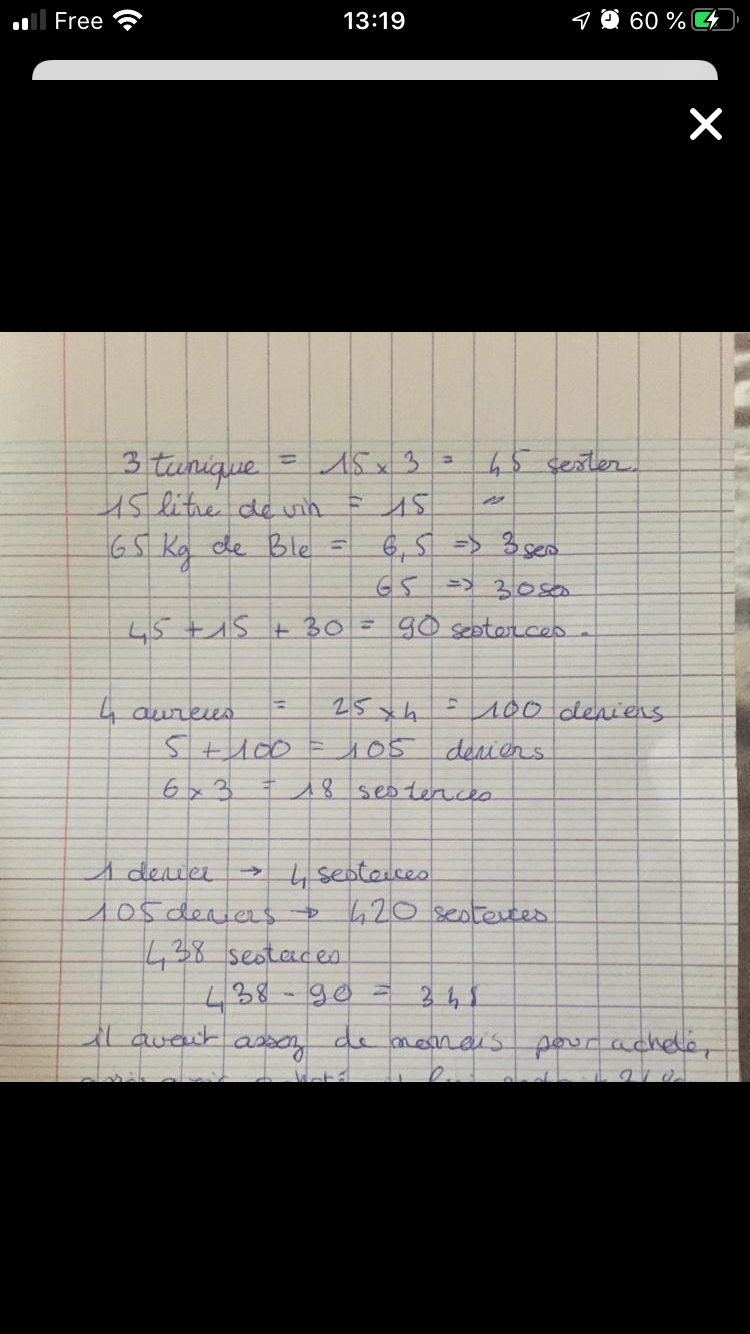 Free 13:19 60 %
3 tunique = 15 x 3 = 45 sester.
15 litre de vin = 15 "
65 Kg de Ble = 6,5 => 3 ses
65 => 30 ses
45 + 15 + 30 = 90 sesterces.
4 aureus = 25 x 4 = 100 deniers
5 + 100 = 105 deniers
6 x 3 = 18 sesterces
1 denier → 4 sesterces
105 deniers → 420 sesterces
438 sesterces
438 - 90 = 348
il avait assez de monnais pour acheté,